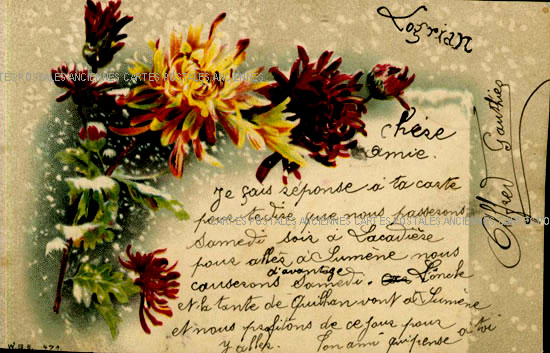 Logrian
Alfred Gauthier
CARTES POSTALES ANCIENNES CARTES POSTALES ANCIENNES
chère
amie.
Je fais réponse à ta carte
pour te dire que nous passerons
CARTES POSTALES ANCIENNES CARTES POSTALES ANCIENNES
samedi soir à Lacadière
pour aller à Sumène nous
d'avantage
causerons samedi. L'oncle
et la tante de Quilhan vont à Sumène
et nous profitons de ce jour pour
y aller. Ton ami qui pense à toi